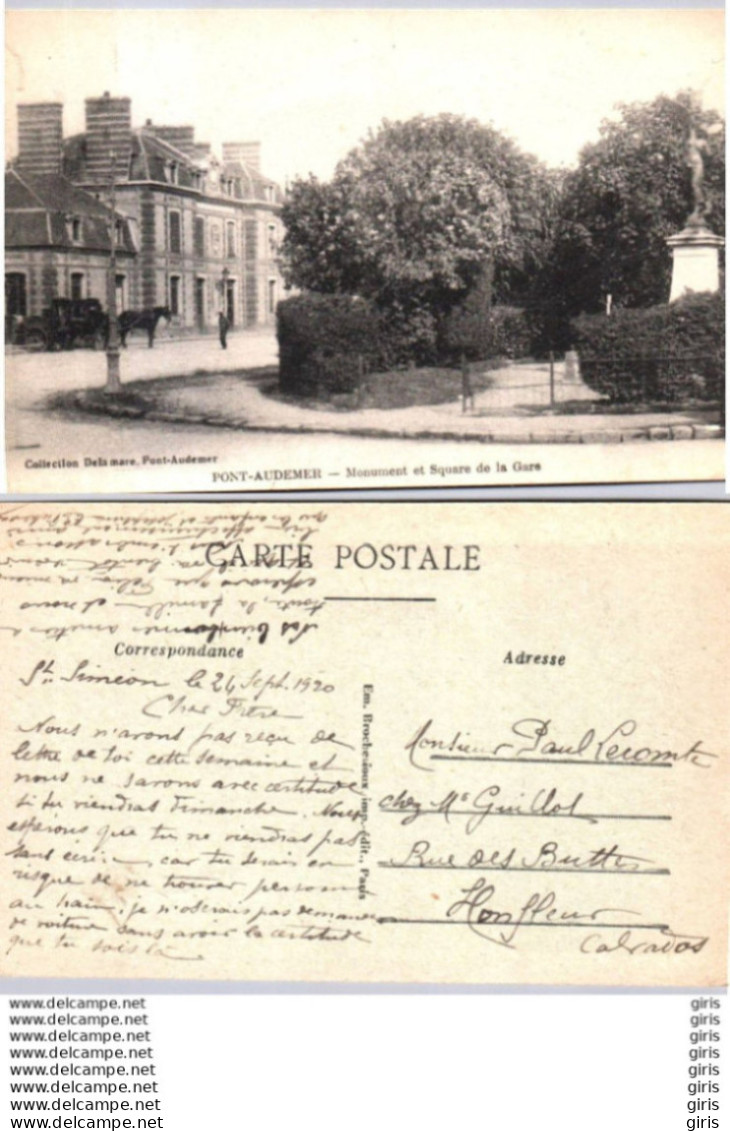 Collection Delamare, Pont-Audemer
PONT-AUDEMER — Monument et Square de la Gare
CARTE POSTALE
Correspondance
Adresse
St. Siméon le 24 Sept. 1920
Cher Frère
Nous n'avons pas reçu de
lettre de toi cette semaine et
nous ne savons avec certitude
si tu viendras Dimanche. Nous
espérons que tu ne viendras pas
sans écrire, car tu serais en
risque de ne trouver personne
au train, je n'oserais pas demander
de voiture sans avoir la certitude
que tu sois là
toute la famille et nous
espérons que
Em. Brocherioux, imp.-édit., Paris
Monsieur Paul Lecomte
chez Mr Guillot
Rue des Buttes
Honfleur
Calvados
www.delcampe.net giris
www.delcampe.net giris
www.delcampe.net giris
www.delcampe.net giris
www.delcampe.net giris
www.delcampe.net giris
www.delcampe.net giris
www.delcampe.net giris